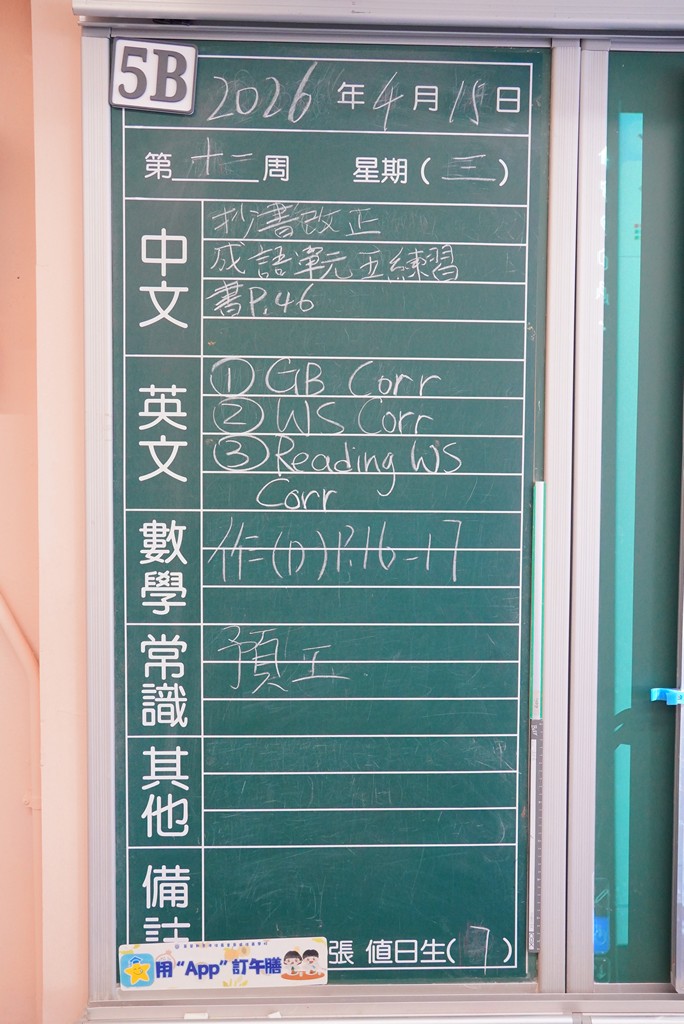 5B
2026 年 4 月 15 日
第 十二 周 星期 ( 三 )
中文
抄書改正
成語單元五練習
書P.46
英文
① GB Corr
② WS Corr
③ Reading WS
Corr
數學
作=(D)P.16-17
常識
預正
其他
備註
張 值日生( 7 )
用 "App" 訂午膳